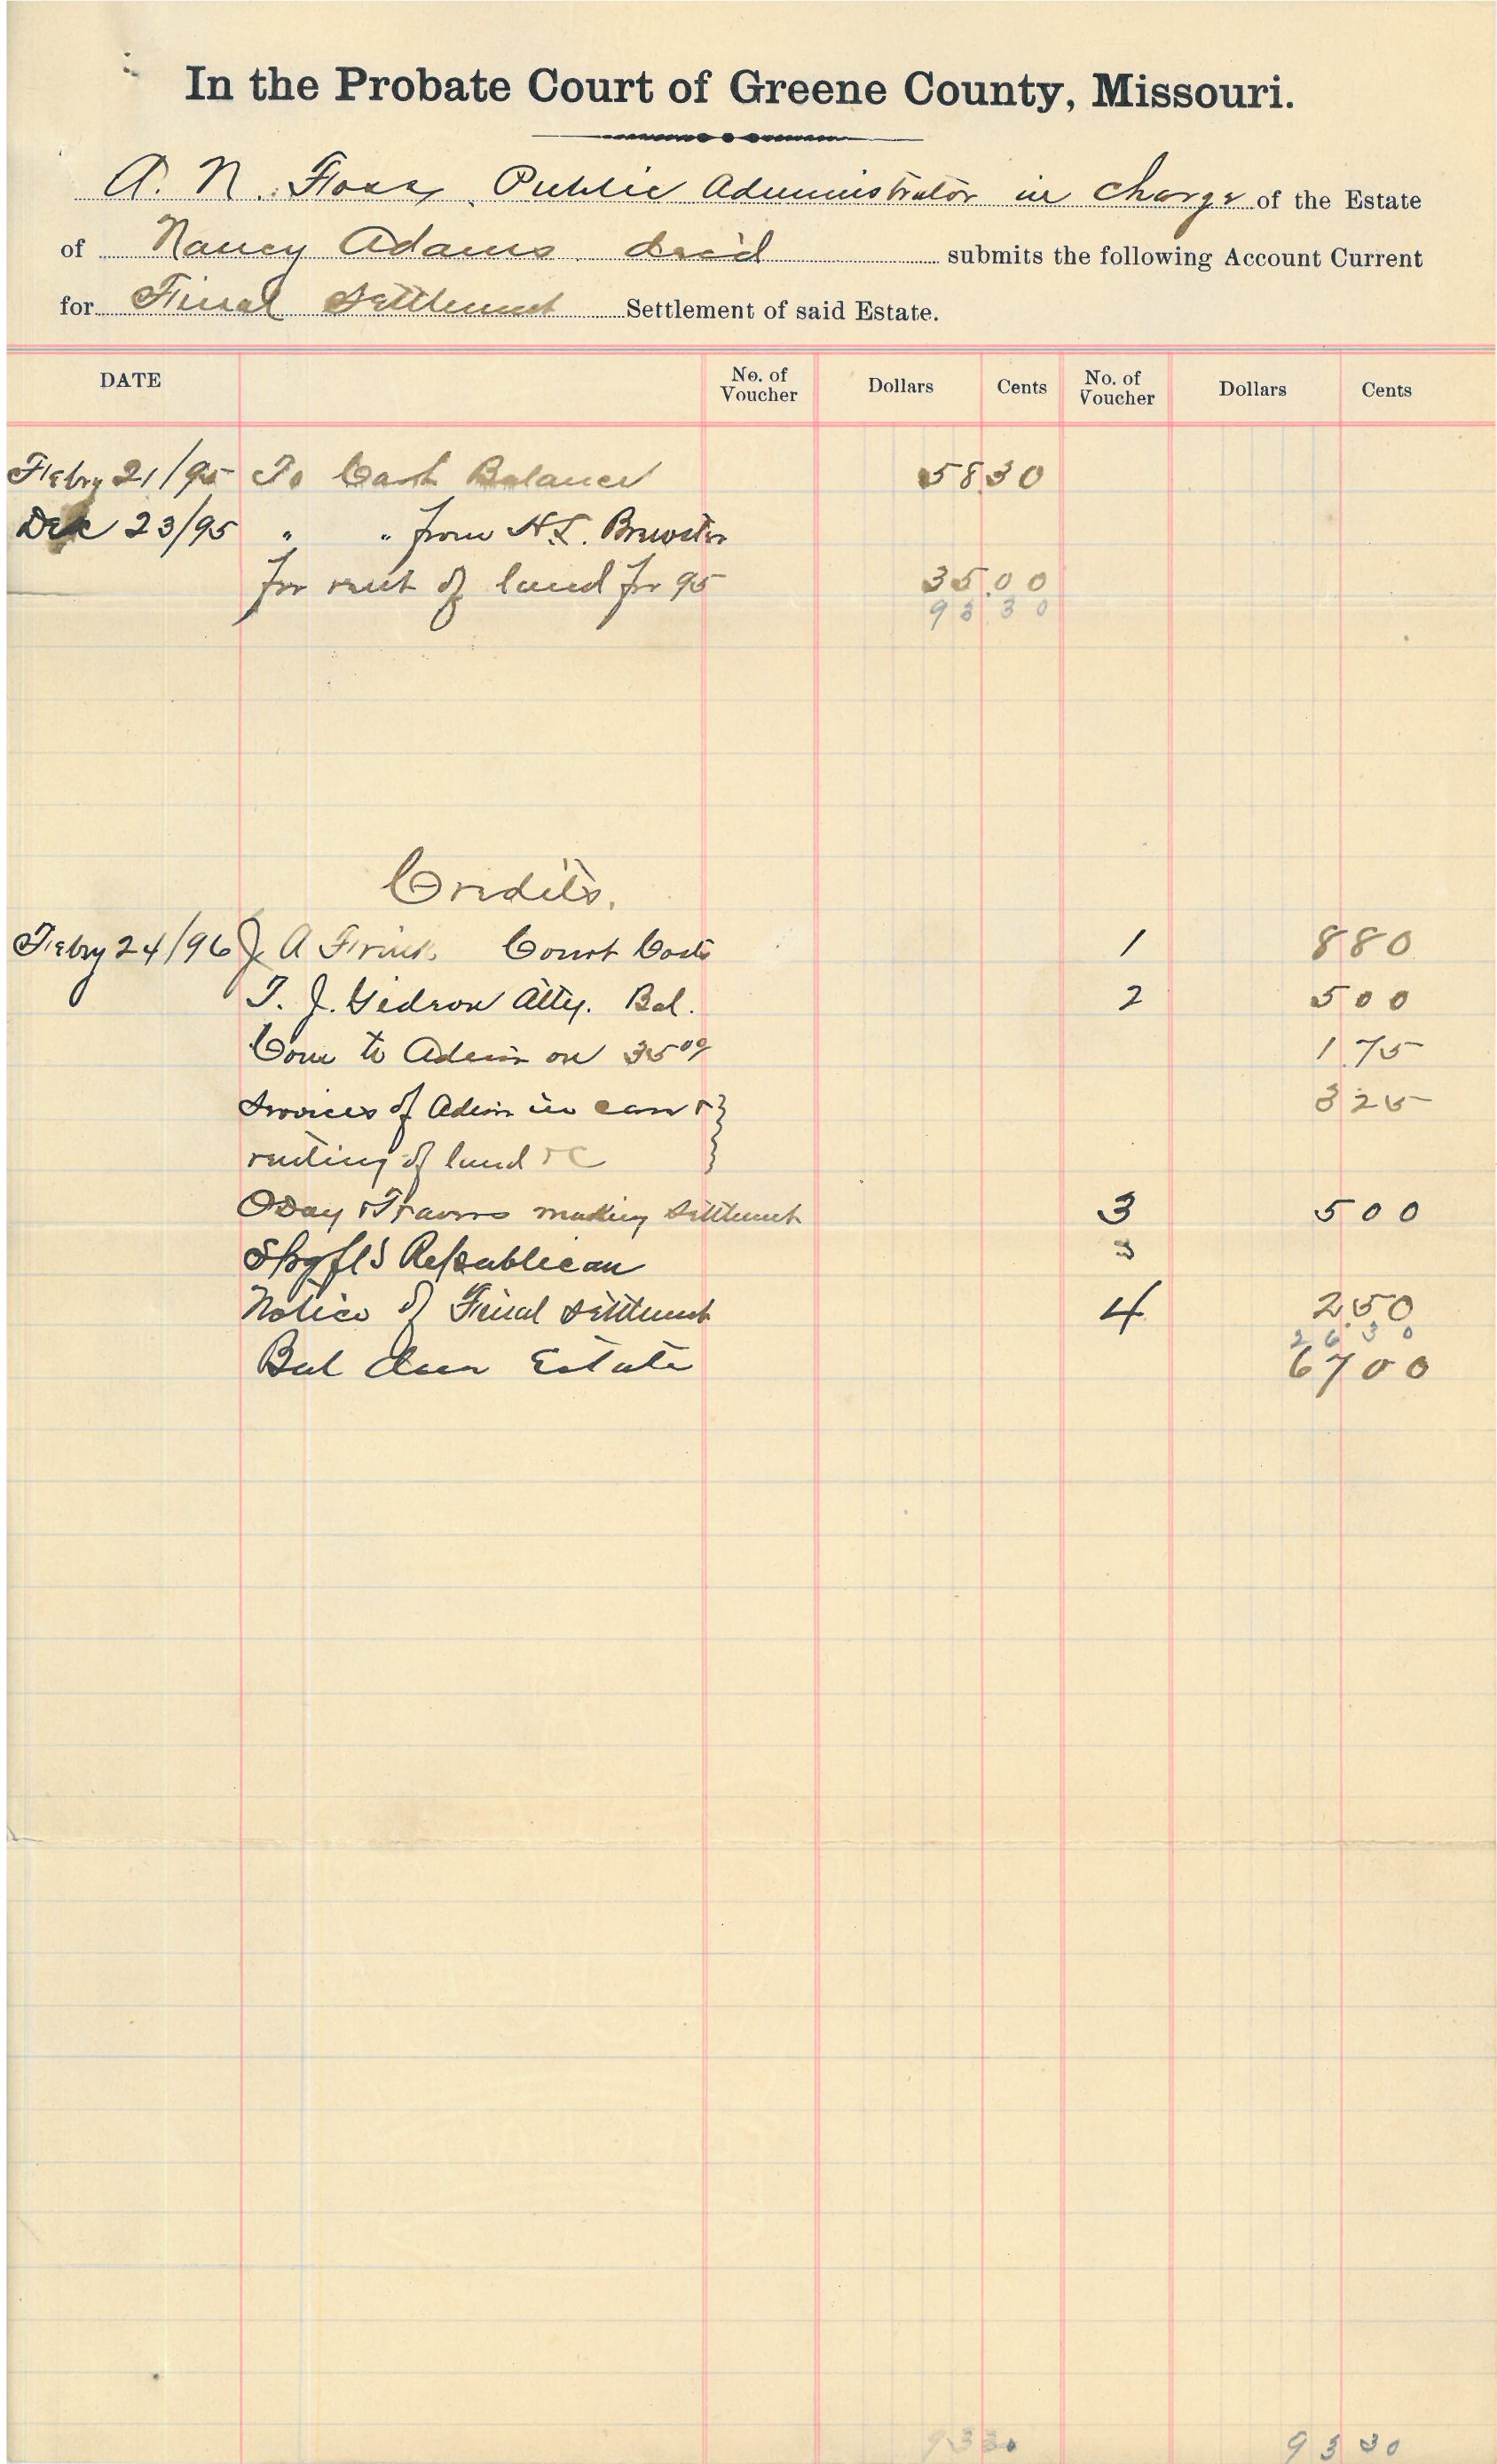 In the Probate Court of Greene County, Missouri.
A. N. Foss, Public Administrator in charge of the Estate
of Nancy Adams decd submits the following Account Current
for Final Settlement Settlement of said Estate.
DATE No. of Voucher Dollars Cents No. of Voucher Dollars Cents
Febry 21/95 To Cash Balance 58 30
Dec 23/95 " " from H.L. Brewster
for rent of land for 95 35.00
93 30
Credits.
Febry 24/96 J. A Frink Court Costs 1 8 80
T. J. Gideon Atty. Bal. 2 5 00
Com to Admin on 35 00 1.75
Services of Admin in care &
renting of land &C 3 25
ODay & Travers making Settlement 3 5 00
Spgfld Republican 3
Notice of Final Settlement 4 2.50
26 30
Bal due Estate 67 00
93 30 93 30